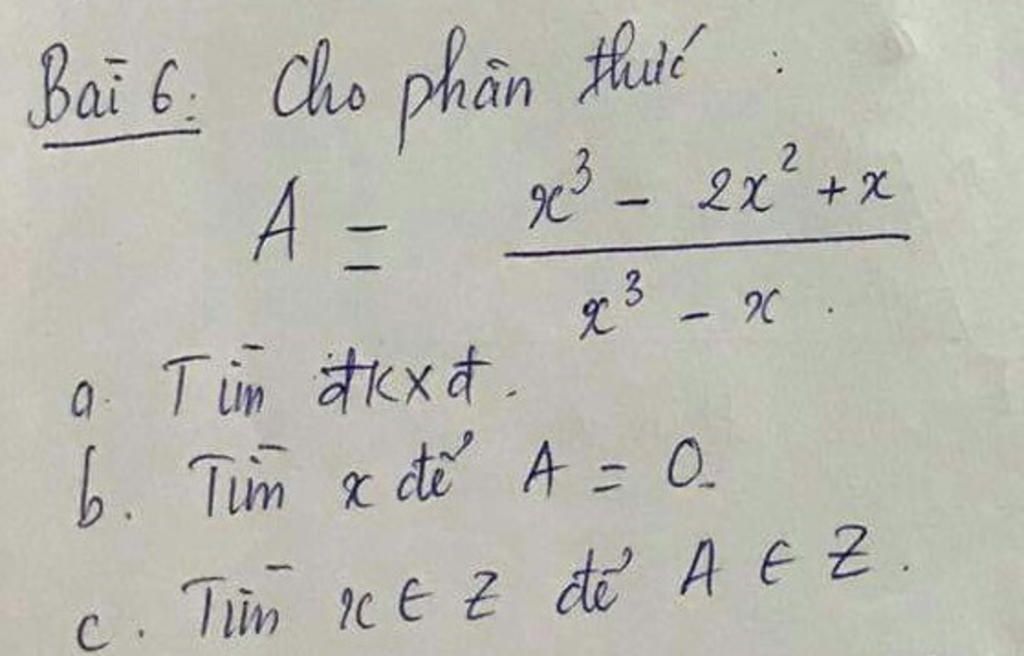 Bài 6: Cho phân thức :
A = \frac{x^3 - 2x^2 + x}{x^3 - x}.
a. Tìm đkxđ.
b. Tìm x để A = 0.
c. Tìm x ∈ Z để A ∈ Z.